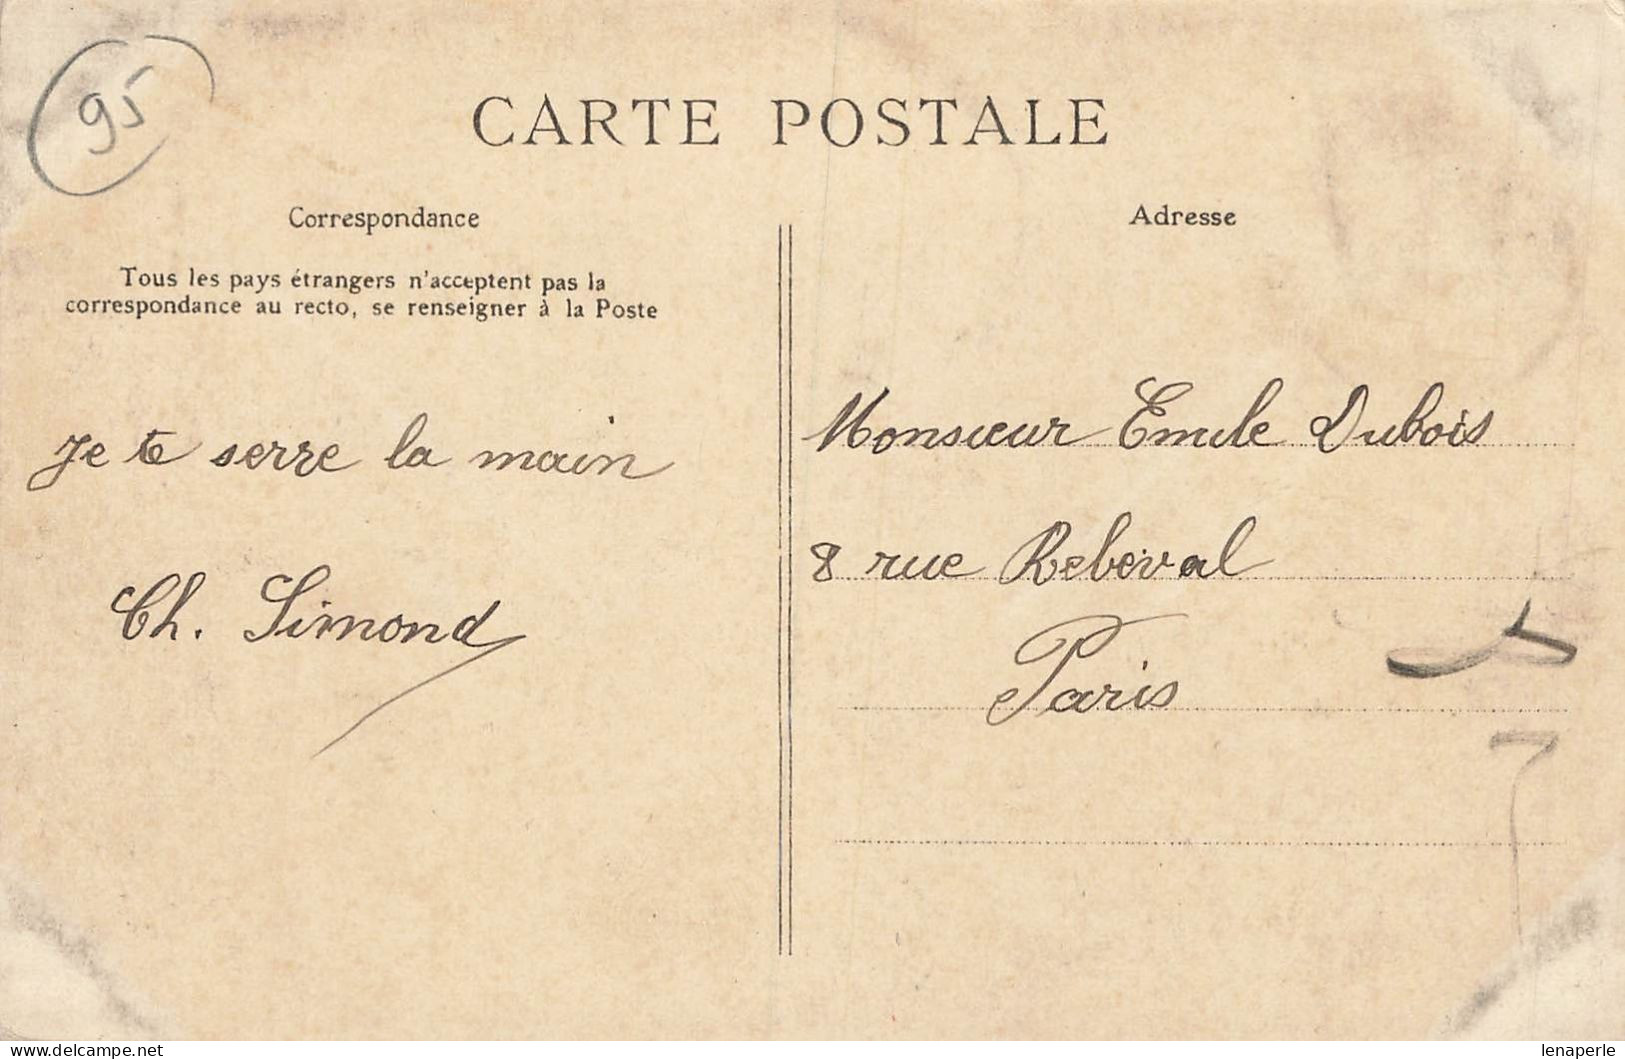 95
CARTE POSTALE
Correspondance
Tous les pays étrangers n'acceptent pas la
correspondance au recto, se renseigner à la Poste
Je te serre la main
Ch. Simond
Adresse
Monsieur Emile Dubois
8 rue Rebeval
Paris
www.delcampe.net
lenaperle